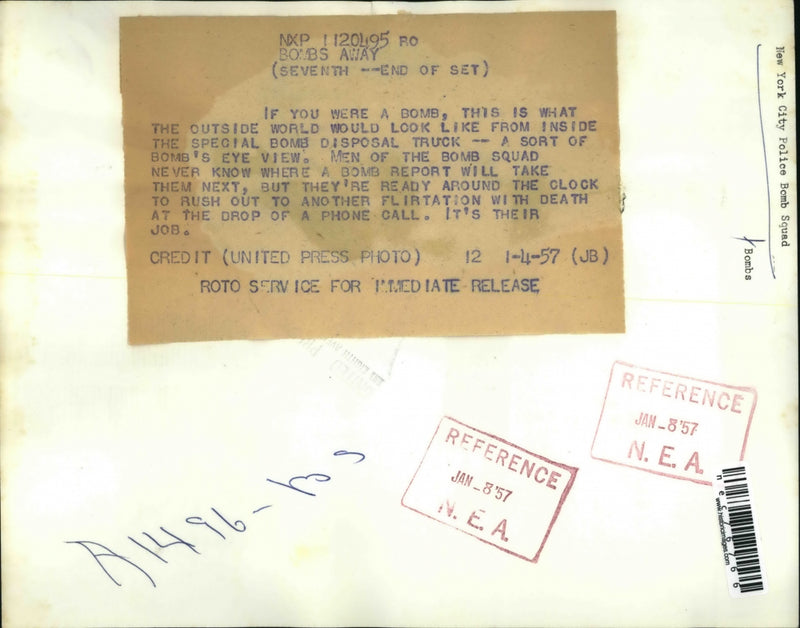 NXP 1120495 RO
BOMBS AWAY
(SEVENTH --END OF SET)
IF YOU WERE A BOMB, THIS IS WHAT
THE OUTSIDE WORLD WOULD LOOK LIKE FROM INSIDE
THE SPECIAL BOMB DISPOSAL TRUCK -- A SORT OF
BOMB'S EYE VIEW. MEN OF THE BOMB SQUAD
NEVER KNOW WHERE A BOMB REPORT WILL TAKE
THEM NEXT, BUT THEY'RE READY AROUND THE CLOCK
TO RUSH OUT TO ANOTHER FLIRTATION WITH DEATH
AT THE DROP OF A PHONE CALL. IT'S THEIR
JOB.
CREDIT (UNITED PRESS PHOTO) 12 1-4-57 (JB)
ROTO SERVICE FOR IMMEDIATE RELEASE
New York City Police Bomb Squad
Bombs
REFERENCE
JAN-8'57
N. E. A.
REFERENCE
JAN-8'57
N. E. A.
www.historicimages.com